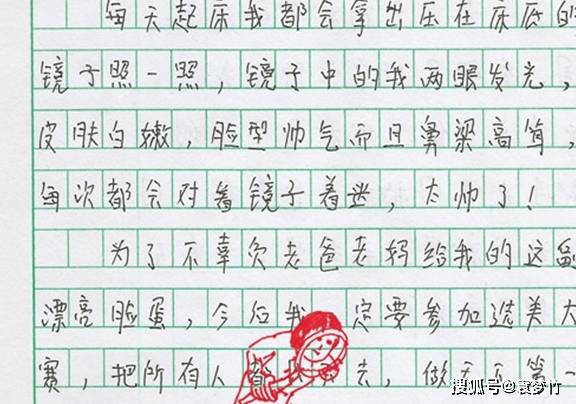 每天起床我都会拿出压在床底的
镜子照一照，镜子中的我两眼发光，
皮肤白嫩，脸型帅气而且鼻梁高，
每次都会对着镜子着迷，太帅了！
为了不辜负老爸老妈给我的这副
漂亮脸蛋，今后我定要参加选美大
赛，把所有人都去，做天下第一
搜狐号@袁梦竹